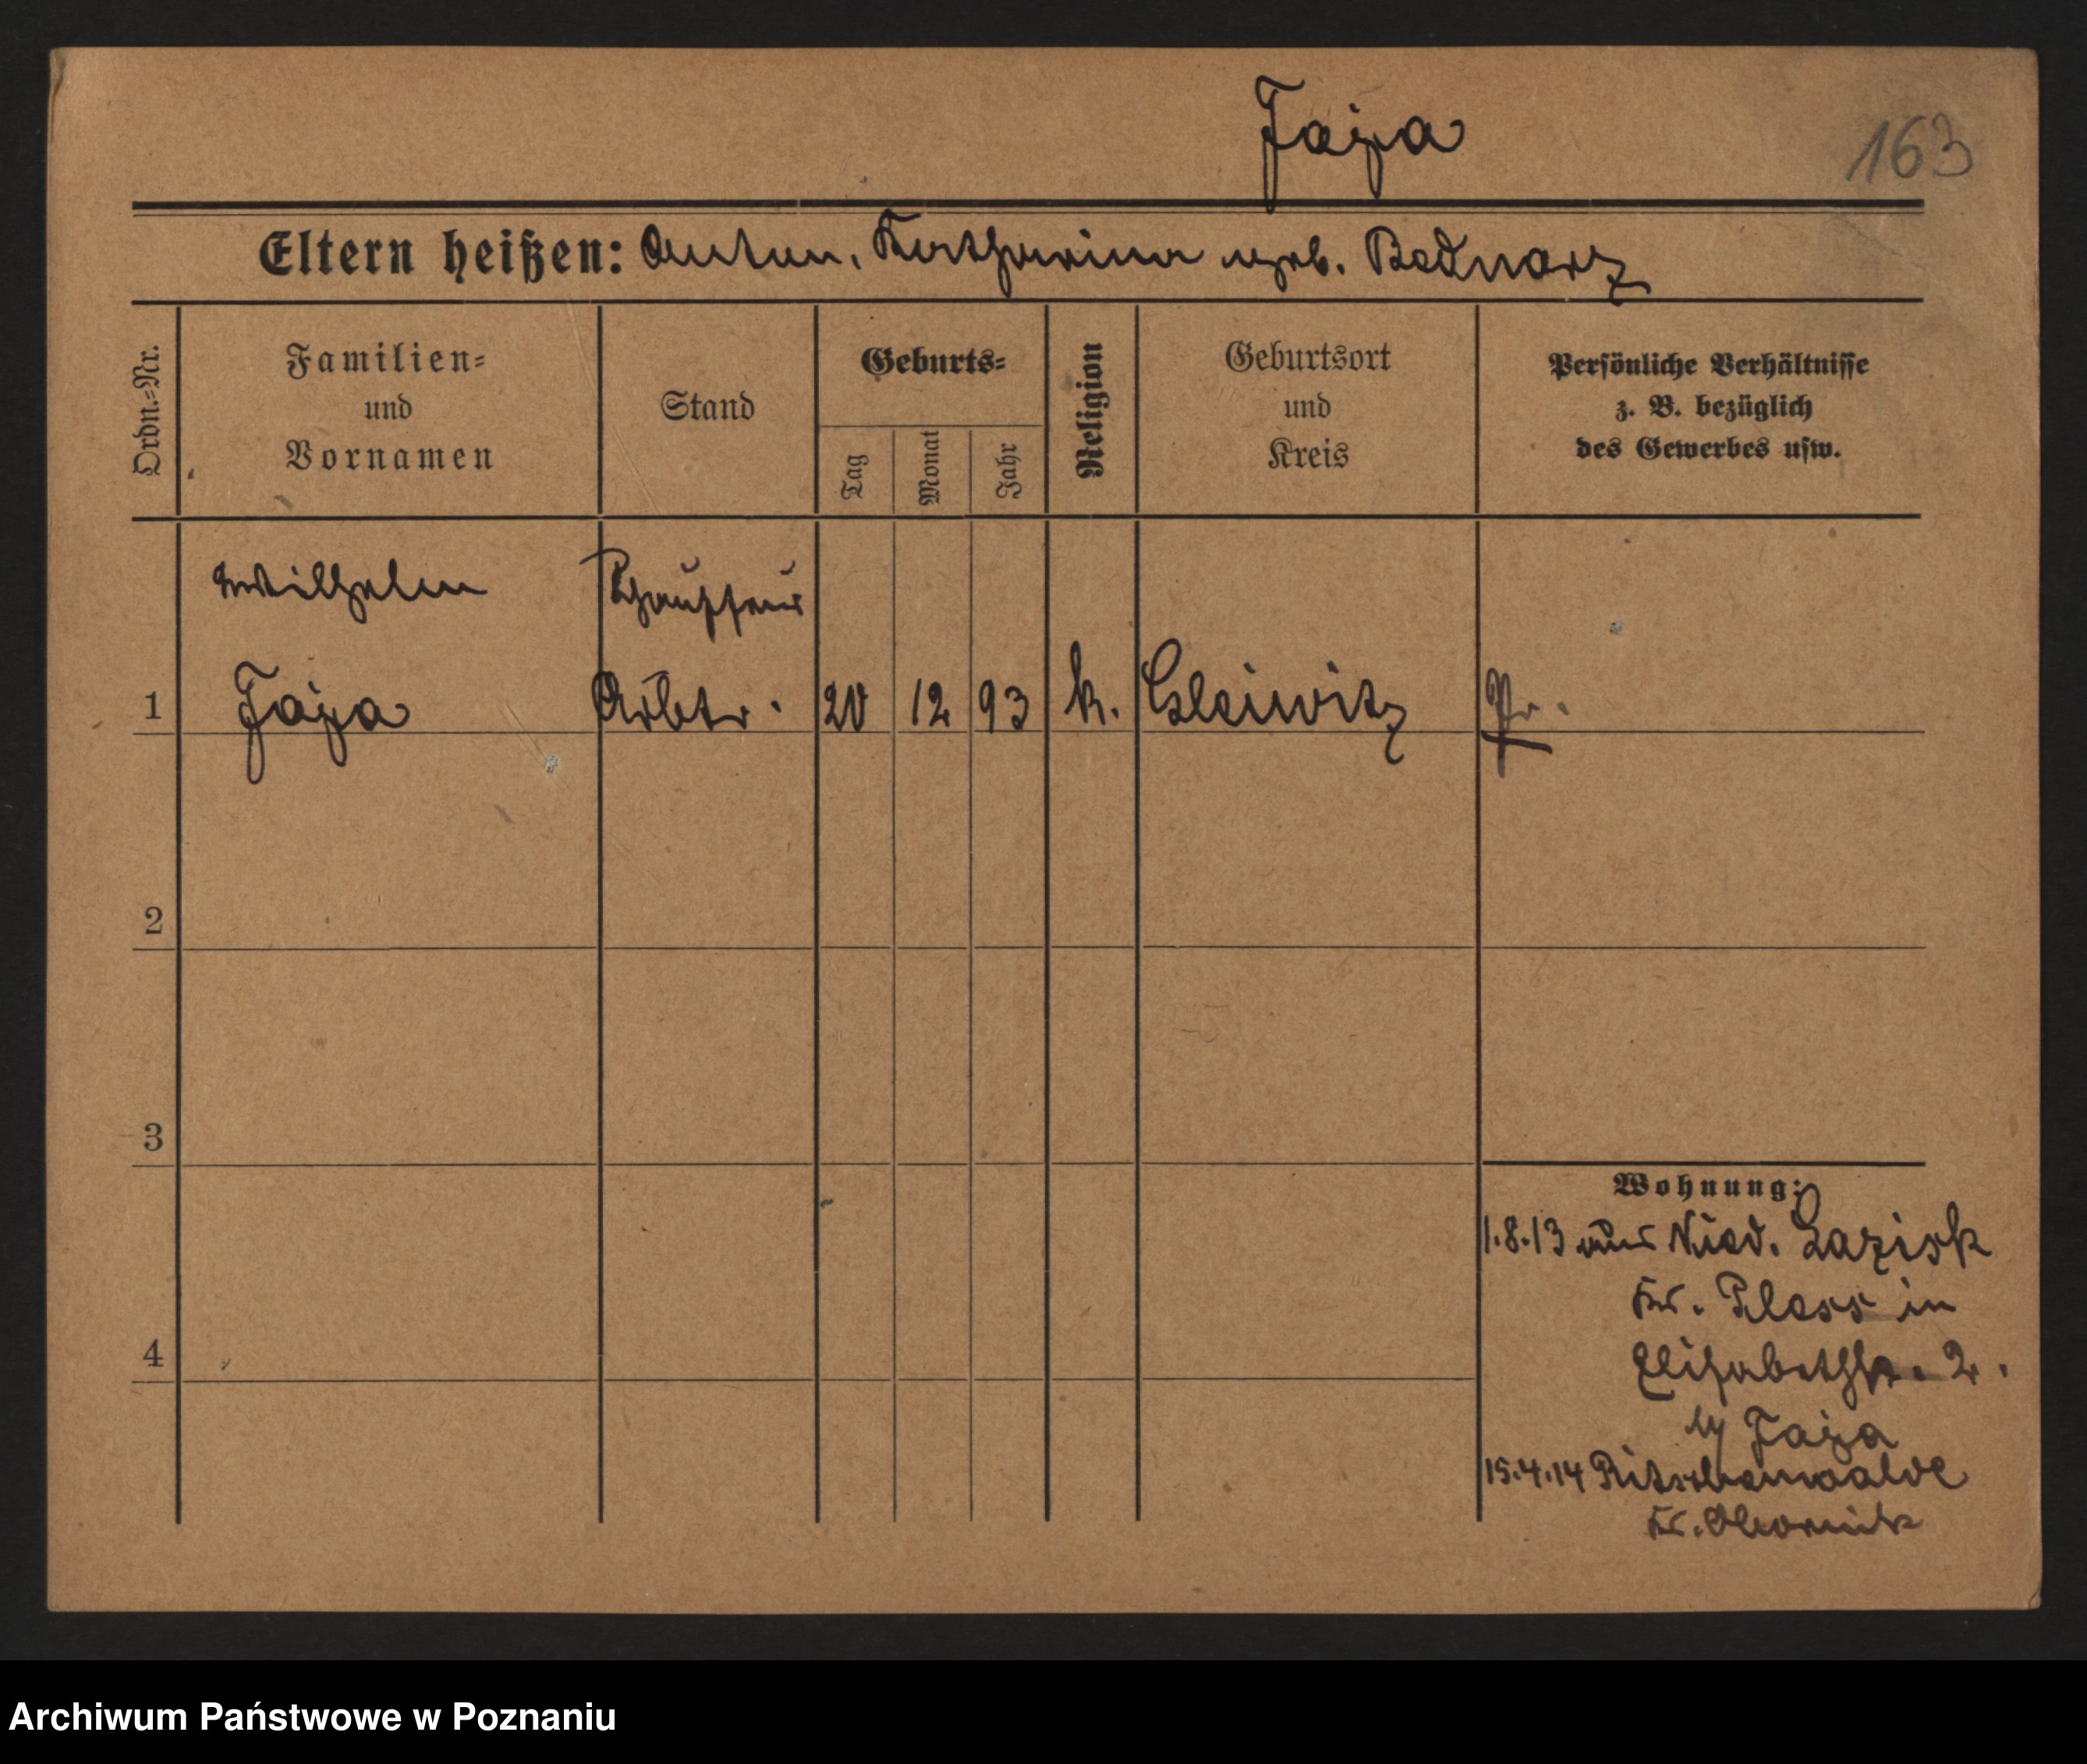 Jaja
163
Eltern heißen: Anton, Katharina geb. Bednarz
Ordn.-Nr.
Familien-
und
Vornamen
Stand
Geburts-
Tag
Monat
Jahr
Religion
Geburtsort
und
Kreis
Persönliche Verhältnisse
z. B. bezüglich
des Gewerbes usw.
Wilhelm
Chauffeur
1
Jaja
Arbtr.
20
12
93
k.
Gleiwitz
Pr.
2
3
Wohnung:
1.8.13 aus Nied. Lazisk
Kr. Pless in
4
Elisabethstr. 2.
by Jaja
15.4.14 Ritschenwalde
Kr. Obornik
Archiwum Państwowe w Poznaniu